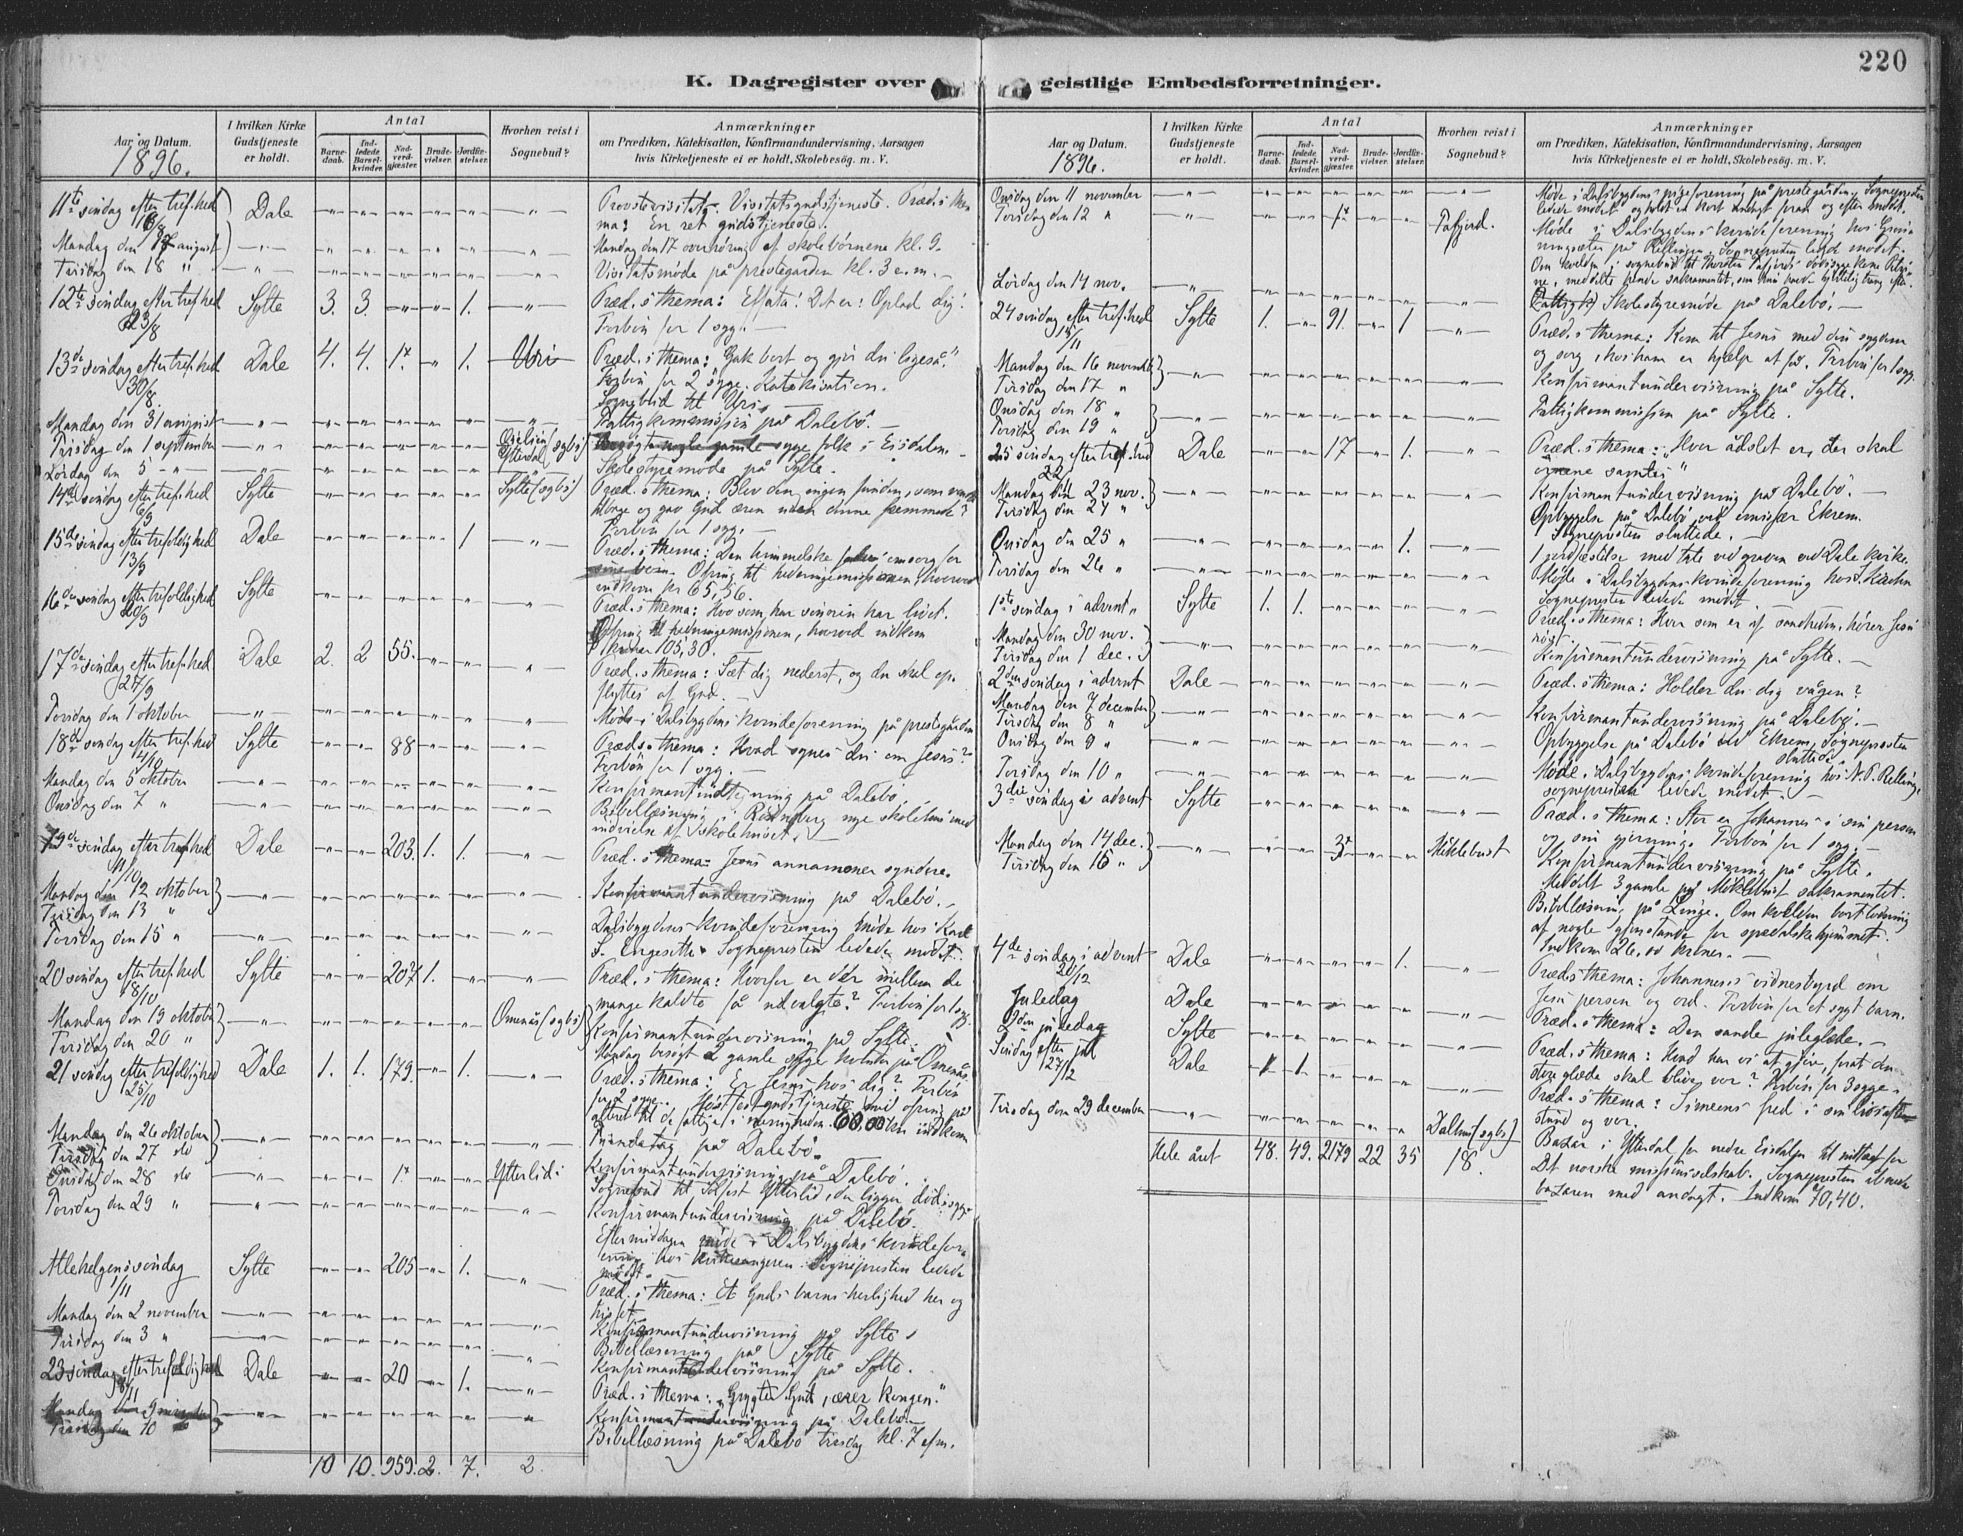 220
K. Dagregister over geistlige Embedsforretninger.
Aar og Datum.
1896.
I hvilken Kirke Gudstjeneste er holdt.
Antal
Barnedaab.
Indledede Barselkvinder.
Nadverdgjæster
Brudevielser.
Jordfæstelser.
Hvorhen reist i Sognebud?
Anmærkninger
om Prædiken, Katekisation, Konfirmandundervisning, Aarsagen
hvis Kirketjeneste ei er holdt, Skolebesög. m. V.
11te söndag efter tref.hed 16/8 Dale Provstevisitats. Visitatsgudstjeneste. Præd. i thema: En ret gudstjeneste.
Mandag den 17 august Mandag den 17 overhöring af skolebörnene kl. 9.
Tirsdag den 18 " Visitatsmöde på prestegården kl. 3 e.m. —
12te söndag efter tref.hed 23/8 Sylte 3. 3. 1. Præd. i thema: Effata! Det er: Oplad dig!
Forbön for 1 syg. —
13de söndag efter tref.hed 30/8. Dale 4. 4. 1. 1. Uri Præd. i thema: "Gak bort og gjör du ligeså."
Forbön for 2 syge. Katekisation.
Sognebud til Uri. —
Mandag den 31 august Fattigkommission på Dalebö. —
Tirsdag den 1 september Ytterdal (sgbs) syge folk i Eisdalen. —
Lördag den 5 Skolestyremöde på Sylte.
14de söndag efter tref.hed 6/9 Sylte Sylte (sgbs) Præd. i thema: Blev der ingen funden, som vendte
tilbage og gav Gud æren uden denne fremmede?
Forbön for 1 syg. —
15de söndag efter trefoldighed 13/9 Dale 1 Præd. i thema: Den himmelske faders omsorg for
sine börn. Ofring til hedningemissionen, hvorved
indkom kr 65,56.
16de söndag efter trefoldighed 20/9 Sylte Præd. i thema: Hvo som har sönnen har livet.
Ofring til hedningemissionen, hvorved indkom
kroner 105,30.
17de söndag efter tref.hed 27/9 Dale 2. 2 55. Præd. i thema: Sæt dig nederst, og du skal op-
flyttes af Gud. —
Torsdag den 1 oktober Möde i Dalsbygdens kvindeforening på prestegården
18de söndag efter tref.hed 4/10 Sylte 88 Præd. i thema: Hvad synes du om Jesus?
Forbön for 1 syg. —
Mandag den 5 oktober på Dalebö
Onsdag den 7 " Bibellæsning i nye skolehus med
indvielse af skolehuset. —
19de söndag efter tref.hed 11/10 Dale 203. 1. 1. Præd. i thema: Jesus annammer syndere.
Mandag den 12 oktober
Tirsdag den 13 " Konfirmantundervisning på Dalebö. —
Torsdag den 15 " Dalsbygdens kvindeforening möde hos
Sognepresten ledede mödet.
20 söndag efter tref.hed 18/10 Sylte 207 1. Præd. i thema: Hvorfor er der imellem de
mange kaldte få udvalgte? Forbön for 1 syg.
Mandag den 19 oktober Omenås (sgbs)
Tirsdag den 20 " Konfirmantundervisning på Sylte.
Mandag besögt 2 gamle syge kvinder på Omenås.
21 söndag efter trefoldighed 25/10 Dale 1. 1. 179. 1. Præd. i thema: Er Jesus hos dig? Forbön
for 2 syge. Höstfestgudstjeneste med ofring på
alteret til de fattige i menigheden. 60.00 kr indkom
Mandag den 26 oktober
Tirsdag den 27 do på Dalebö.
Onsdag den 28 do 1. Ytterlid. Konfirmantundervisning på Dalebö.
Sognebud til Ytterlid, der ligger dödssyg.
Torsdag den 29 " Konfirmantundervisning på Dalebö.
Eftermiddagen möde i Dalsbygdens kvindefore-
ning hos kirkesangeren. Sognepresten ledede
mödet. —
Allehelgens söndag 1/11 Sylte 205 1. Præd. i thema: Et Guds barns herlighed her og
hisset.
Mandag den 2 november Konfirmantundervisning på Sylte.
Bibellæsning på Sylte
Tirsdag den 3 " Konfirmantundervisning på Sylte.
23 söndag efter trefoldighed 8/11 Dale 20 1. Præd. i thema: "Frygter Gud, ærer kongen."
Mandag den 9 november Konfirmantundervisning på Dalebö
Tirsdag den 10 Bibellæsning på Dalebö tirsdag kl. 7 efm.
10 10. 959. 2. 7. 2.
Aar og Datum.
1896.
I hvilken Kirke Gudstjeneste er holdt.
Antal
Barnedaab.
Indledede Barselkvinder.
Nadverdgjæster
Brudevielser.
Jordfæstelser.
Hvorhen reist i Sognebud?
Anmærkninger
om Prædiken, Katekisation, Konfirmandundervisning, Aarsagen
hvis Kirketjeneste ei er holdt, Skolebesög. m. V.
Onsdag den 11 november Möde i Dalsbygdens pigeforening på prestegården. Sognepresten
ledede mödet og holdt en kort andagt foran og efter mödet.
Torsdag den 12 " Tafjord. Möde i Dalsbygdens kvindeforening hos
på Rellingen. Sognepresten ledede mödet.
Om kvelden i sognebud til Tafjord
Lördag den 14 nov. Skolestyremöde på Dalebö. —
24 söndag efter tref.hed 15/11 Sylte 1. 91. 1 Præd. i thema: Kom til Jesus med din sygdom
og sorg, hos ham er hjælp at få. Forbön for 1 syg.
Mandag den 16 november
Tirsdag den 17 " Konfirmantundervisning på Sylte.
Onsdag den 18 "
Torsdag den 19 " Fattigkommission på Sylte.
25 söndag efter tref.hed 22/11 Dale 17 1. Præd. i thema: "Hvor ådslet er, der skal
örnene samles"
Mandag den 23 nov.
Tirsdag den 24 " Konfirmantundervisning på Dalebö. —
Opbyggelse på Dalebö ved emissær Ekrem.
Sognepresten sluttede. —
Onsdag den 25 " 1. 1 jordfæstelse med tale ved graven ved Dale kirke.
Torsdag den 26 " Möde i Dalsbygdens kvindeforening hos
Sognepresten ledede mödet.
1ste söndag i advent Sylte 1. 1. Præd. i thema: Hver som er af sandheden, hörer Jesu
röst.
Mandag den 30 nov.
Tirsdag den 1 dec. Konfirmantundervisning på Sylte. —
2den söndag i advent Dale Præd. i thema: Holder du dig vågen?
Mandag den 7 december
Tirsdag den 8 " Konfirmantundervisning på Dalebö. —
Onsdag den 9 " Opbyggelse på Dalebö ved Ekrem. Sognepresten
sluttede.
Torsdag den 10 " Möde i Dalsbygdens kvindeforening hos N. P. Relling,
sognepresten ledede mödet. —
3die söndag i advent Sylte Præd. i thema: Stor er Johannes i sin person
og sin gjerning. Forbön for 1 syg. —
Mandag den 14 dec. 3 Miklebust Konfirmantundervisning på Sylte.
Tirsdag den 15 " Meddelt 3 gamle på Miklebust sakramentet.
Bibellæsning på Linge. Om kvelden bortlodning
af nogle gjenstande for spedalskehjemmet.
Indkom 26,00 kroner. —
4de söndag i advent 20/12 Dale 1. Præd. i thema: Johannes's vidnesbyrd om
Jesu person og ord. Forbön for et sygt barn.
Juledag Dale Præd. i thema: Den sande juleglæde. —
2den juledag Sylte Præd. i thema: Hvad har vi at gjöre, forat den
store glæde skal blive vor? Forbön for 3 syge.
Söndag efter jul 27/12 Dale 1 1 Præd. i thema: Simeons fred i sin livsaften-
stund og vor.
Tirsdag den 29 december (sgbs) Bazar i Ytterdal for nedre Eisdalen til indtægt for
Det norske missionsselskab. Sognepresten åbnede
bazaren med andagt. Indkom 70,40.
Hele året 48. 49. 2179 22 35 18.